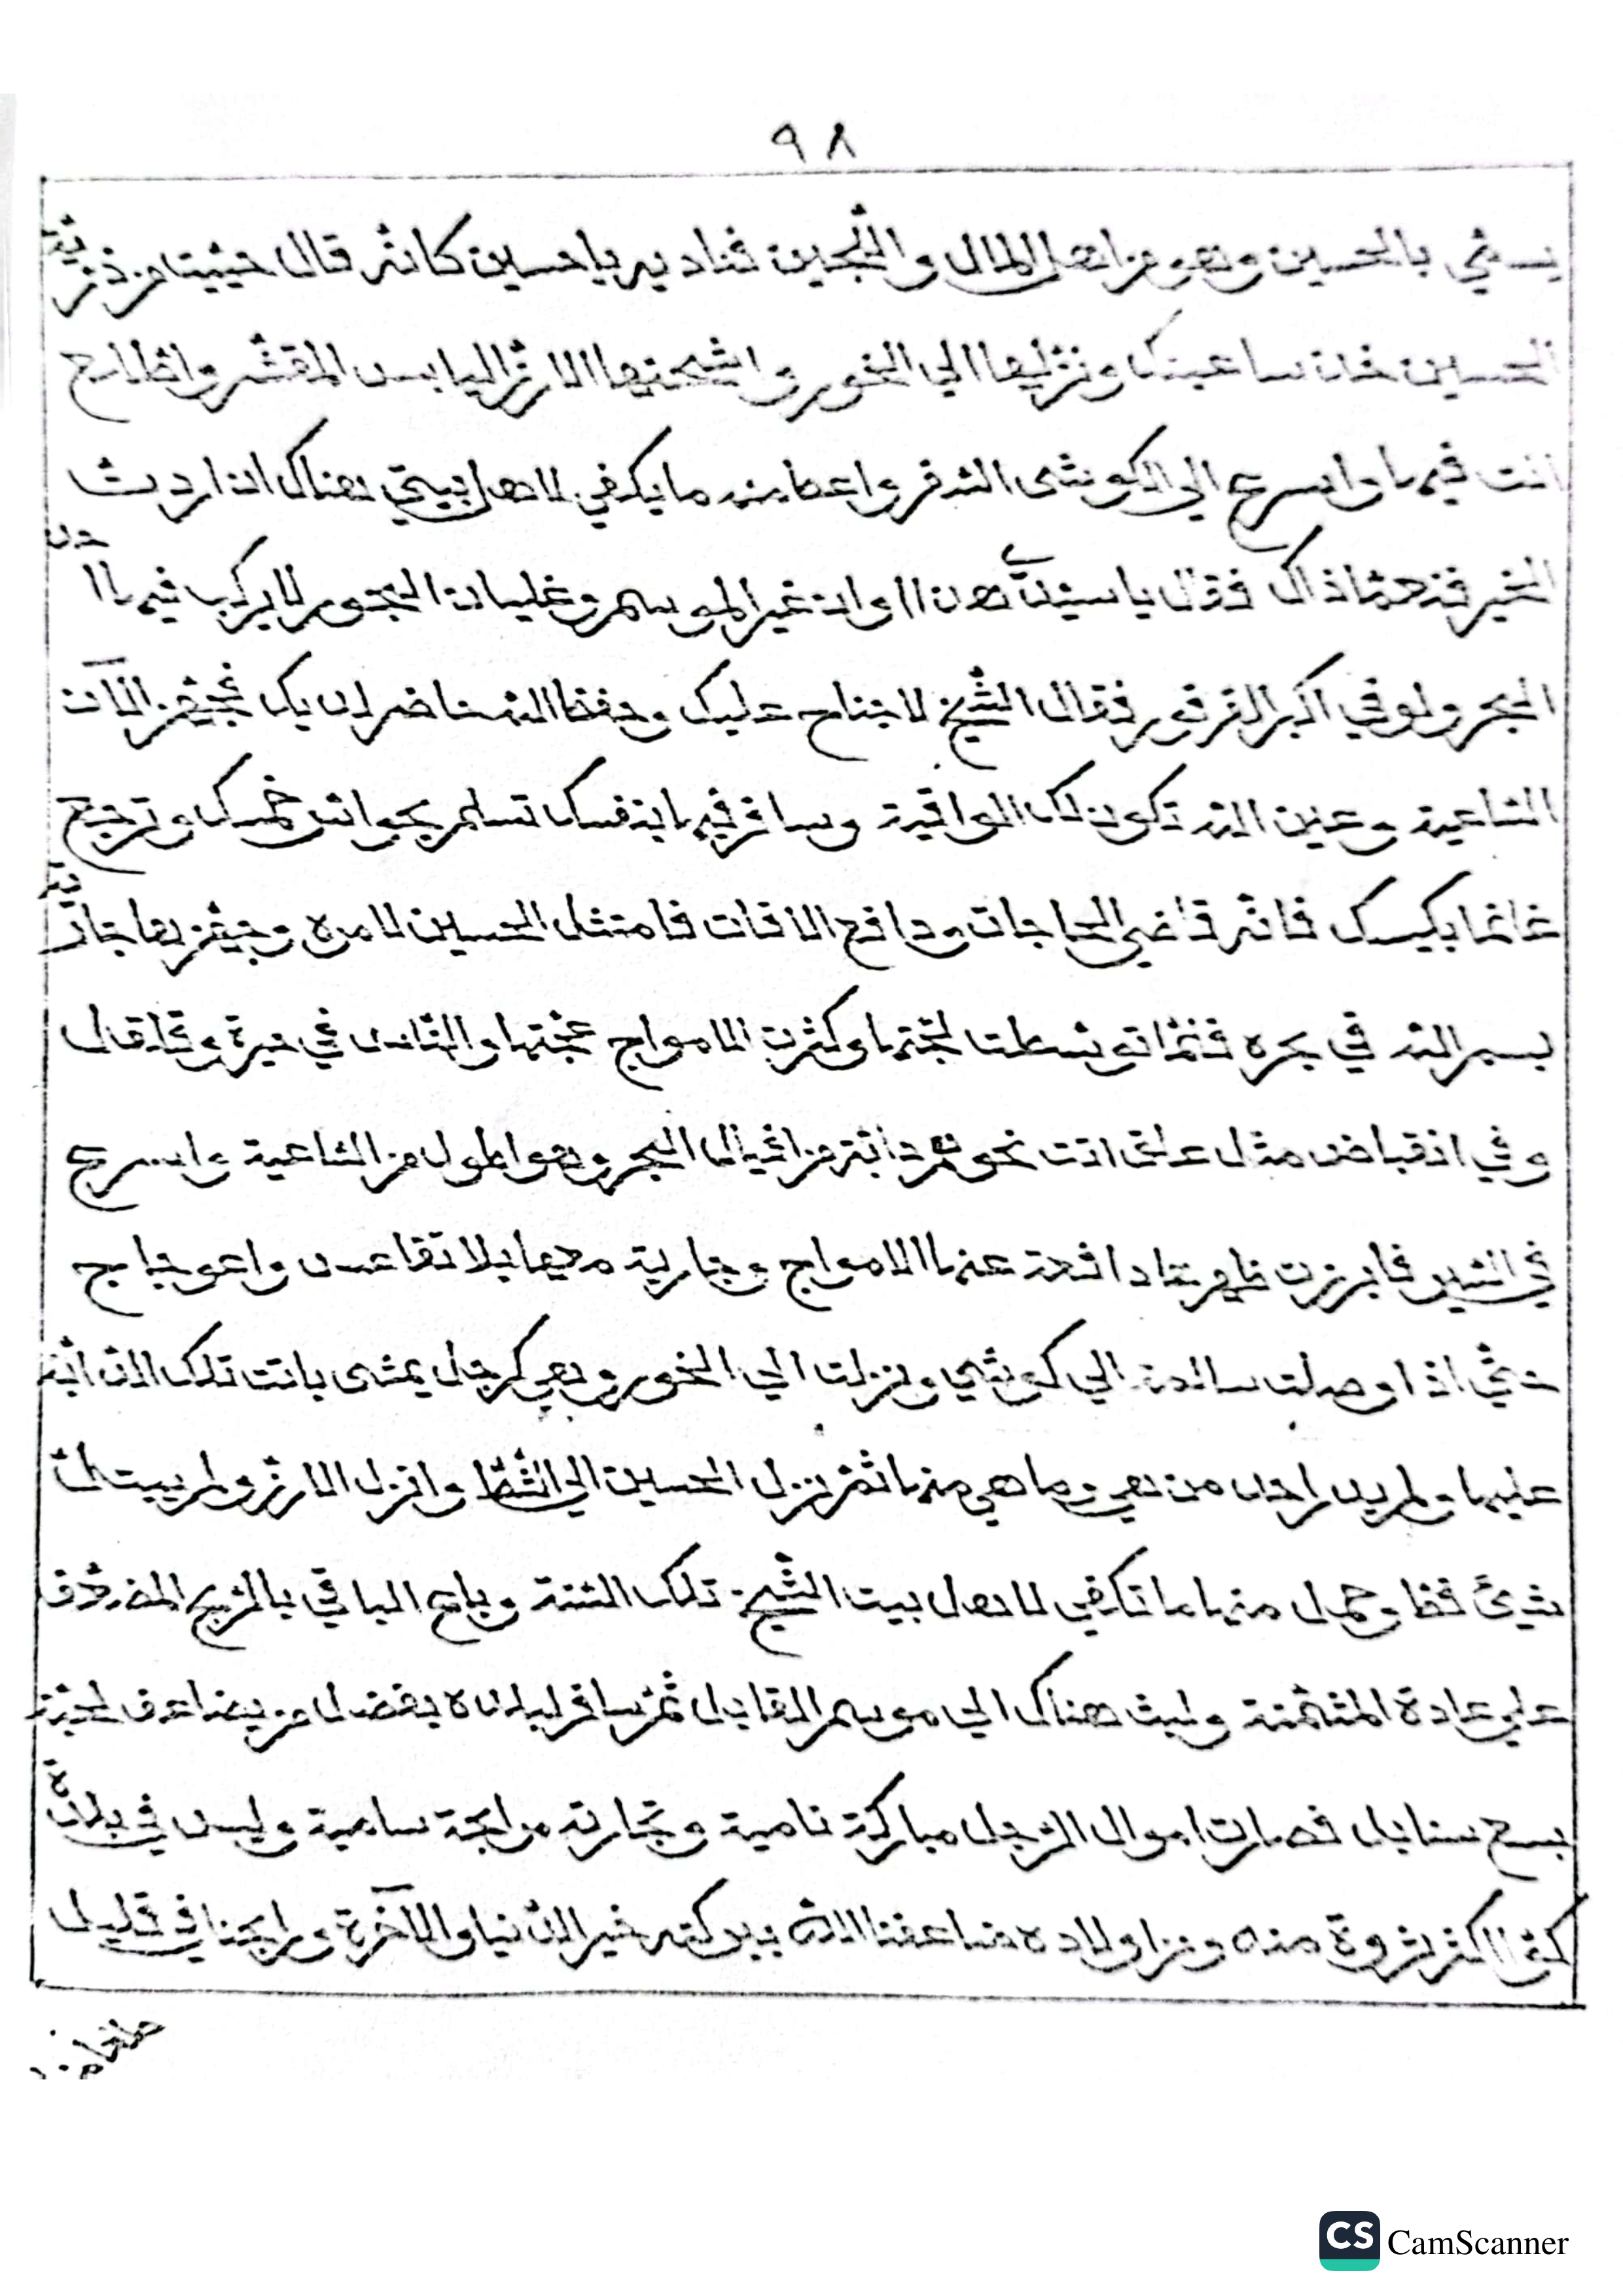 ٩٨
يسمّي بالحسين وهو من اهل المال واللّجين فناديه يا حسين كانّه قال حييت من ذرّية
الحسين خذ ساعيتك ونزّلها الي الخور واشحنها الارز اليابس المقشّر واطلع
انت فيها واسرع الي الكوشى الشرقي واعط منه ما يكفي لاهل بيتي هناك ان اردت
الخير فنعمّا ذاك فقال يا سيّدي هذا اوان غير الموسم وغليان البحور لا يركب فيها احد
البحر ولو في اكبر القرقور فقال الشّيخ لا جناح عليك وحفظ اللّه حاضر لديك فجهّز الآن
السّاعية وعين اللّه تكون لك الواقية وسافر فيها بنفسك تسلم بحواسّ خمسك وترجع
غانما بكيسك فانّه قاضي الحاجات ودافع الافات فامتثل الحسين لامره وجهّزها جارية
بسم اللّه في بحره فلمّا توسّطت لجّتها وكثرت الامواج عجّتها والنّاس في حيرة وقيل وقال
وفي انقباض مثل عدلى اتت نحوهم دابّة من افيال البحر وهو اطول من السّاعية واسرع
في السّير فابرزت ظهرها دافعة عنها الامواج وجارية معها بلا تقاعس واعوجاج
حتّي اذا وصلت سالمة الي كوشي ونزلت الي الخور وهي كرجل يمشى بانت تلك الدّابّة
عليها ولم يدر احد من هي وما هي منها ثمّ نزل الحسين الي الشّطّ وانزل الارز ولم يبتلّ
شيئ قط وحمل منها ما تكفي لاهل بيت الشّيخ تلك السّنة وباع الباقي بالرّبح المضعّف
علي عادة المثمّنة ولبث هناك الي موسم القابل ثمّ سافر لبلده بفضل من يضاعف لحبّة
سبع سنابل فصارت اموال الرّجل مباركة نامية وتجارته رابحة سامية وليس في بلدة
كنّو اكثر ثروة منه ومن اولاده ضاعفنا اللّه ببركته خير الدّنيا والآخرة ورابحنا في قليل